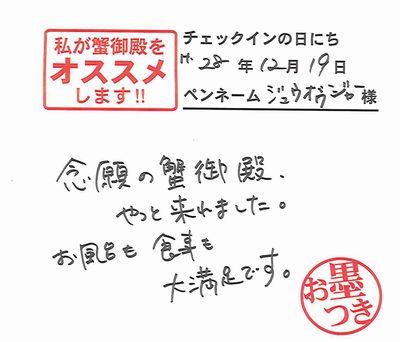 私が蟹御殿を
オススメ
します!!
チェックインの日にち
H.28年12月19日
ペンネーム ジュウオウジャー様
念願の蟹御殿、
やっと来れました。
お風呂も食事も
大満足です。
お墨つき